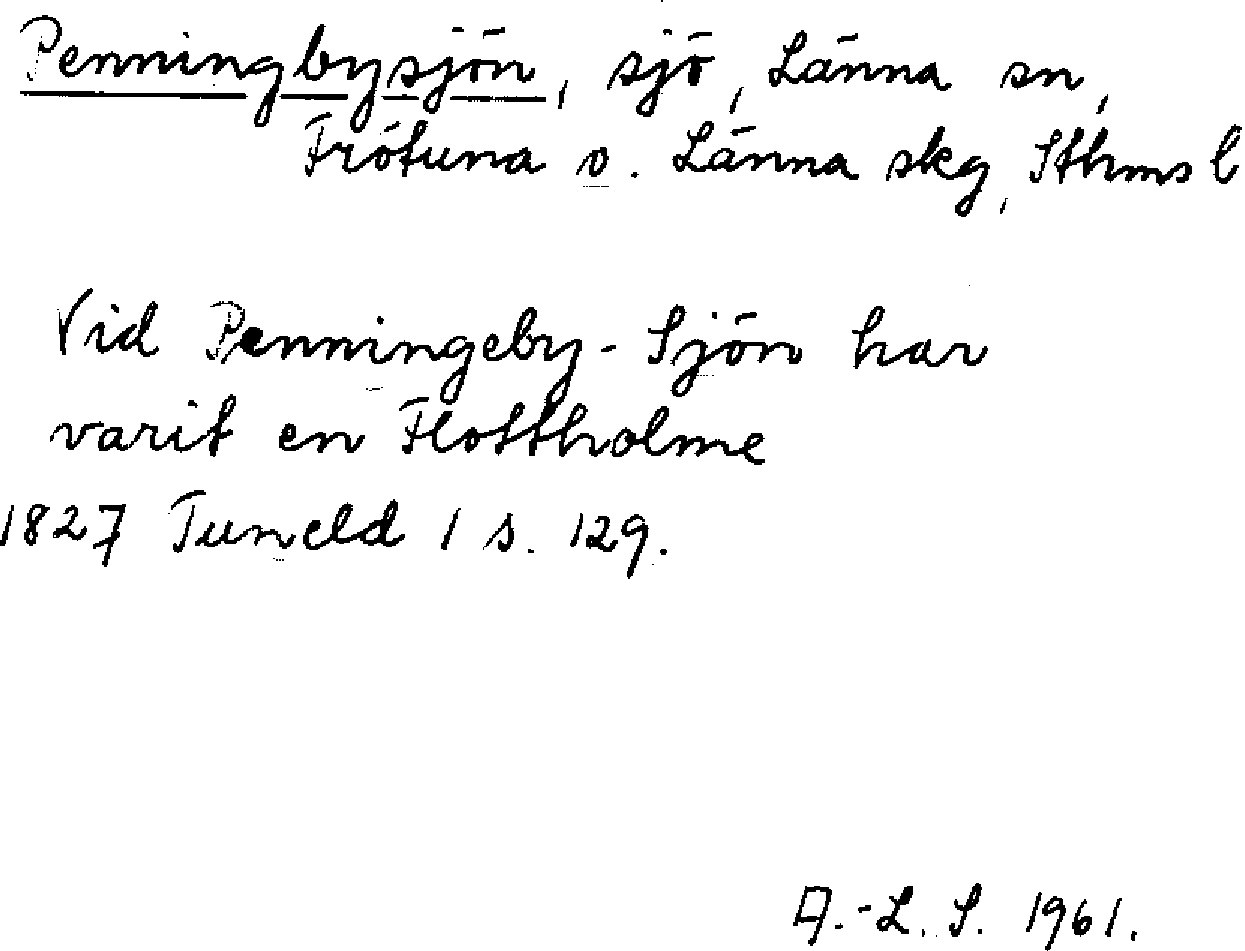 Penningbysjön, sjö, Länna sn,
Frötuna o. Länna skg, Sthms l
Vid Penningeby-Sjön har
varit en Flottholme
1827 Tuneld 1 s. 129.
A.-L. S. 1961.